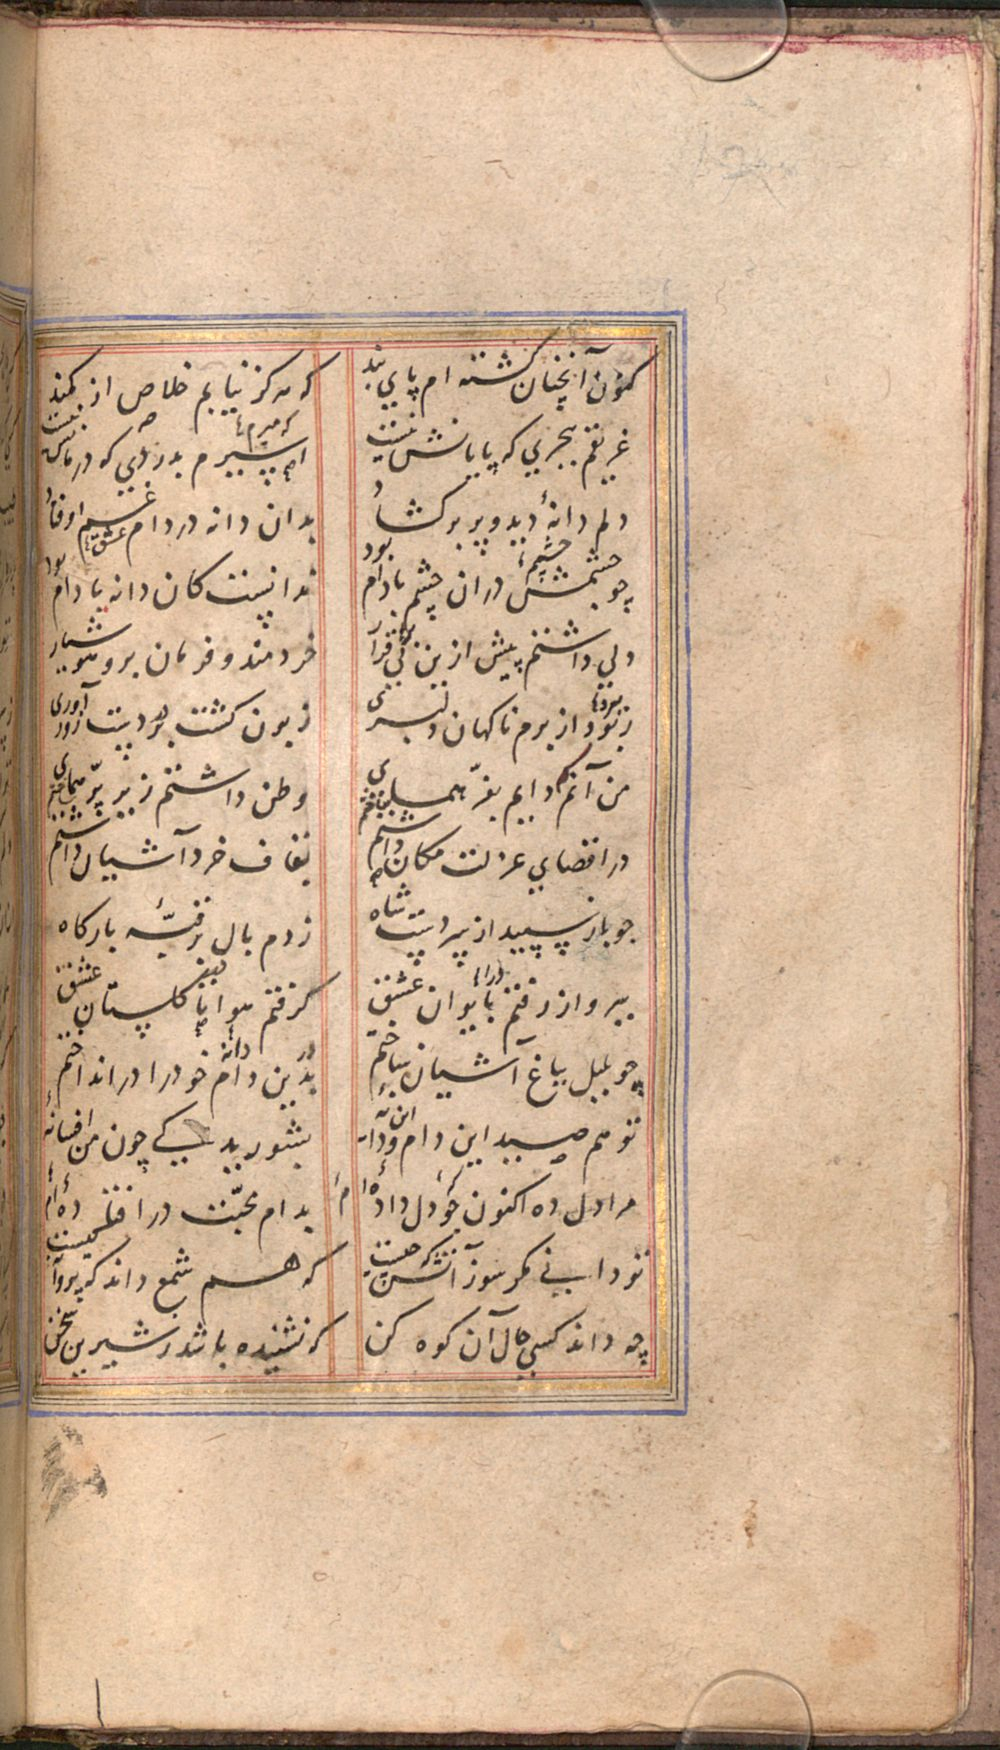 کنون آنچنان گشته ام پای بند که هرگز نیابم خلاص از کمند
غریقم ببحری که پایانش نیست اسیرم بدردی که درمانش نیست
دلم دانهٔ دید و پر برکشاد بدان دانه در دام عشق اوفتاد
چو چشمش دران چشم بادام بود ندانست کان دانه با دام بود
دلی داشتم پیش ازین بی قرار خردمند و فرمان بر و هوشیار
ربود از برم ناکهان دلبری زبون کشت بر دست زورآوری
من آنم که دایم بفرّ همای وطن داشتم زیر پرّ همای
در اقصای عزلت مکان داشتم بقاف خرد آشیان داشتم
چو باز سپید از سر دست شاه زدم بال بر قبّهٔ بارکاه
بپرواز رفتم بایوان عشق کرفتم هوای کلستان عشق
چو بلبل بباغ آشیان ساختم بدین دام خود را در انداختم
تو هم صید این دام و دانهٔ بشوریدکی چون من افسانهٔ
مرا دل ده اکنون چو دل دادهٔ بدام محبّت در افتادهٔ
تو دانی مکر سوز آتش که چیست که هم شمع داند که پروانه کیست
چه داند کسی حال آن کوه کن که نشنیده باشد ز شیرین سخن